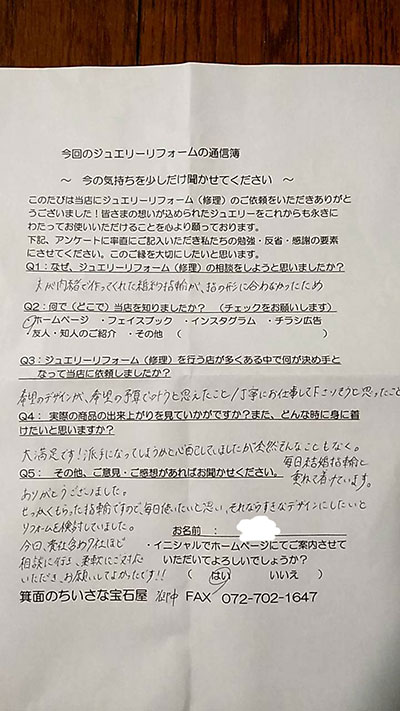 今回のジュエリーリフォームの通信簿
～ 今の気持ちを少しだけ聞かせてください ～
このたびは当店にジュエリーリフォーム(修理)のご依頼をいただきありがと
うございました！皆さまの想いが込められたジュエリーをこれからも永きに
わたってお使いいただけることを心より願っております。
下記、アンケートに率直にご記入いただき私たちの勉強・反省・感謝の要素
にさせてください。このご縁を大切にしたいと思います。
Q1：なぜ、ジュエリーリフォーム(修理)の相談をしようと思いましたか？
夫が内緒で作ってくれた婚約指輪が、指の形に合わなかったため
Q2：何で(どこで)当店を知りましたか？ (チェックをお願いします)
ホームページ ・フェイスブック ・インスタグラム ・チラシ広告
友人・知人のご紹介 ・その他 ( )
Q3：ジュエリーリフォーム(修理)を行う店が多くある中で何が決め手と
なって当店に依頼しましたか？
希望のデザインが、希望の予算で叶うと思えたこと/丁寧にお仕事して下さりそうと思ったこと
Q4： 実際の商品の出来上がりを見ていかがですか？また、どんな時に身に着
けたいと思いますか？
大満足です！派手になってしまうかと心配していましたが全然そんなこともなく。
毎日結婚指輪と
重ねて着けています。
Q5： その他、ご意見・ご感想があればお聞かせください。
ありがとうございました。
せっかくもらった指輪ですので、毎日使いたいと思い、それならすきなデザインにしたいと
リフォームを検討していました。
今回、貴社含め7社ほど
相談に行き、柔軟にご対応
いただき、お願いしてよかったです!!
お名前 ：
・イニシャルでホームページにてご案内させて
いただいてよろしいでしょうか？
( はい いいえ )
箕面のちいさな宝石屋 FAX 072-702-1647